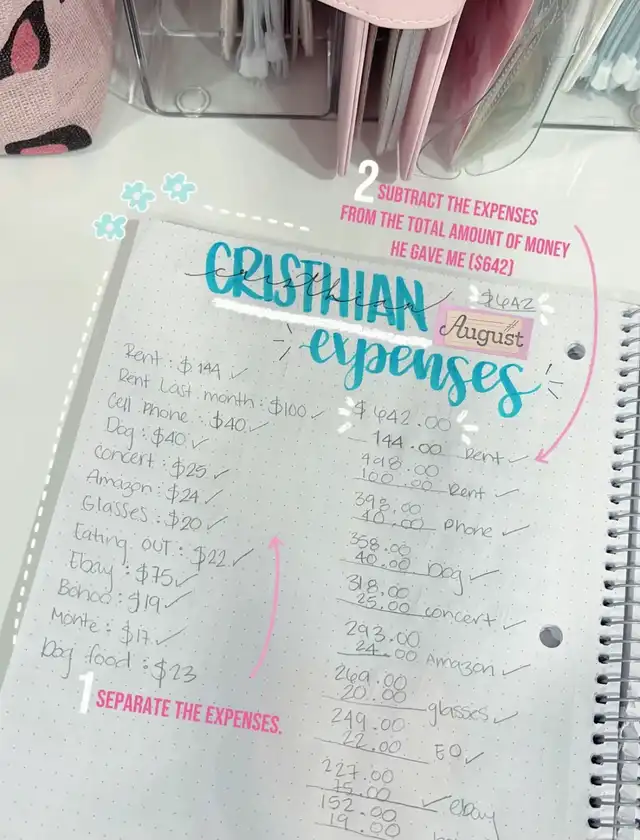 2 SUBTRACT THE EXPENSES
FROM THE TOTAL AMOUNT OF MONEY
HE GAVE ME ($642)
CRISTHIAN
cristhian
$642
August
expenses
Rent: $144 ✓
Rent Last month: $100 ✓
Cell Phone: $40 ✓
Dog: $40 ✓
Concert: $25 ✓
Amazon: $24 ✓
Glasses: $20 ✓
Eating OUT: $22 ✓
Ebay: $75 ✓
Bohoo: $19 ✓
Monte: $17 ✓
Dog food: $23
1 SEPARATE THE EXPENSES.
$642.00
144.00 Rent ✓
498.00
100.00 Rent ✓
398.00
40.00 Phone ✓
358.00
40.00 Dog ✓
318.00
25.00 Concert ✓
293.00
24.00 Amazon ✓
269.00
20.00 glasses ✓
249.00
22.00 EO ✓
227.00
75.00 ✓ ebay
152.00
19.00